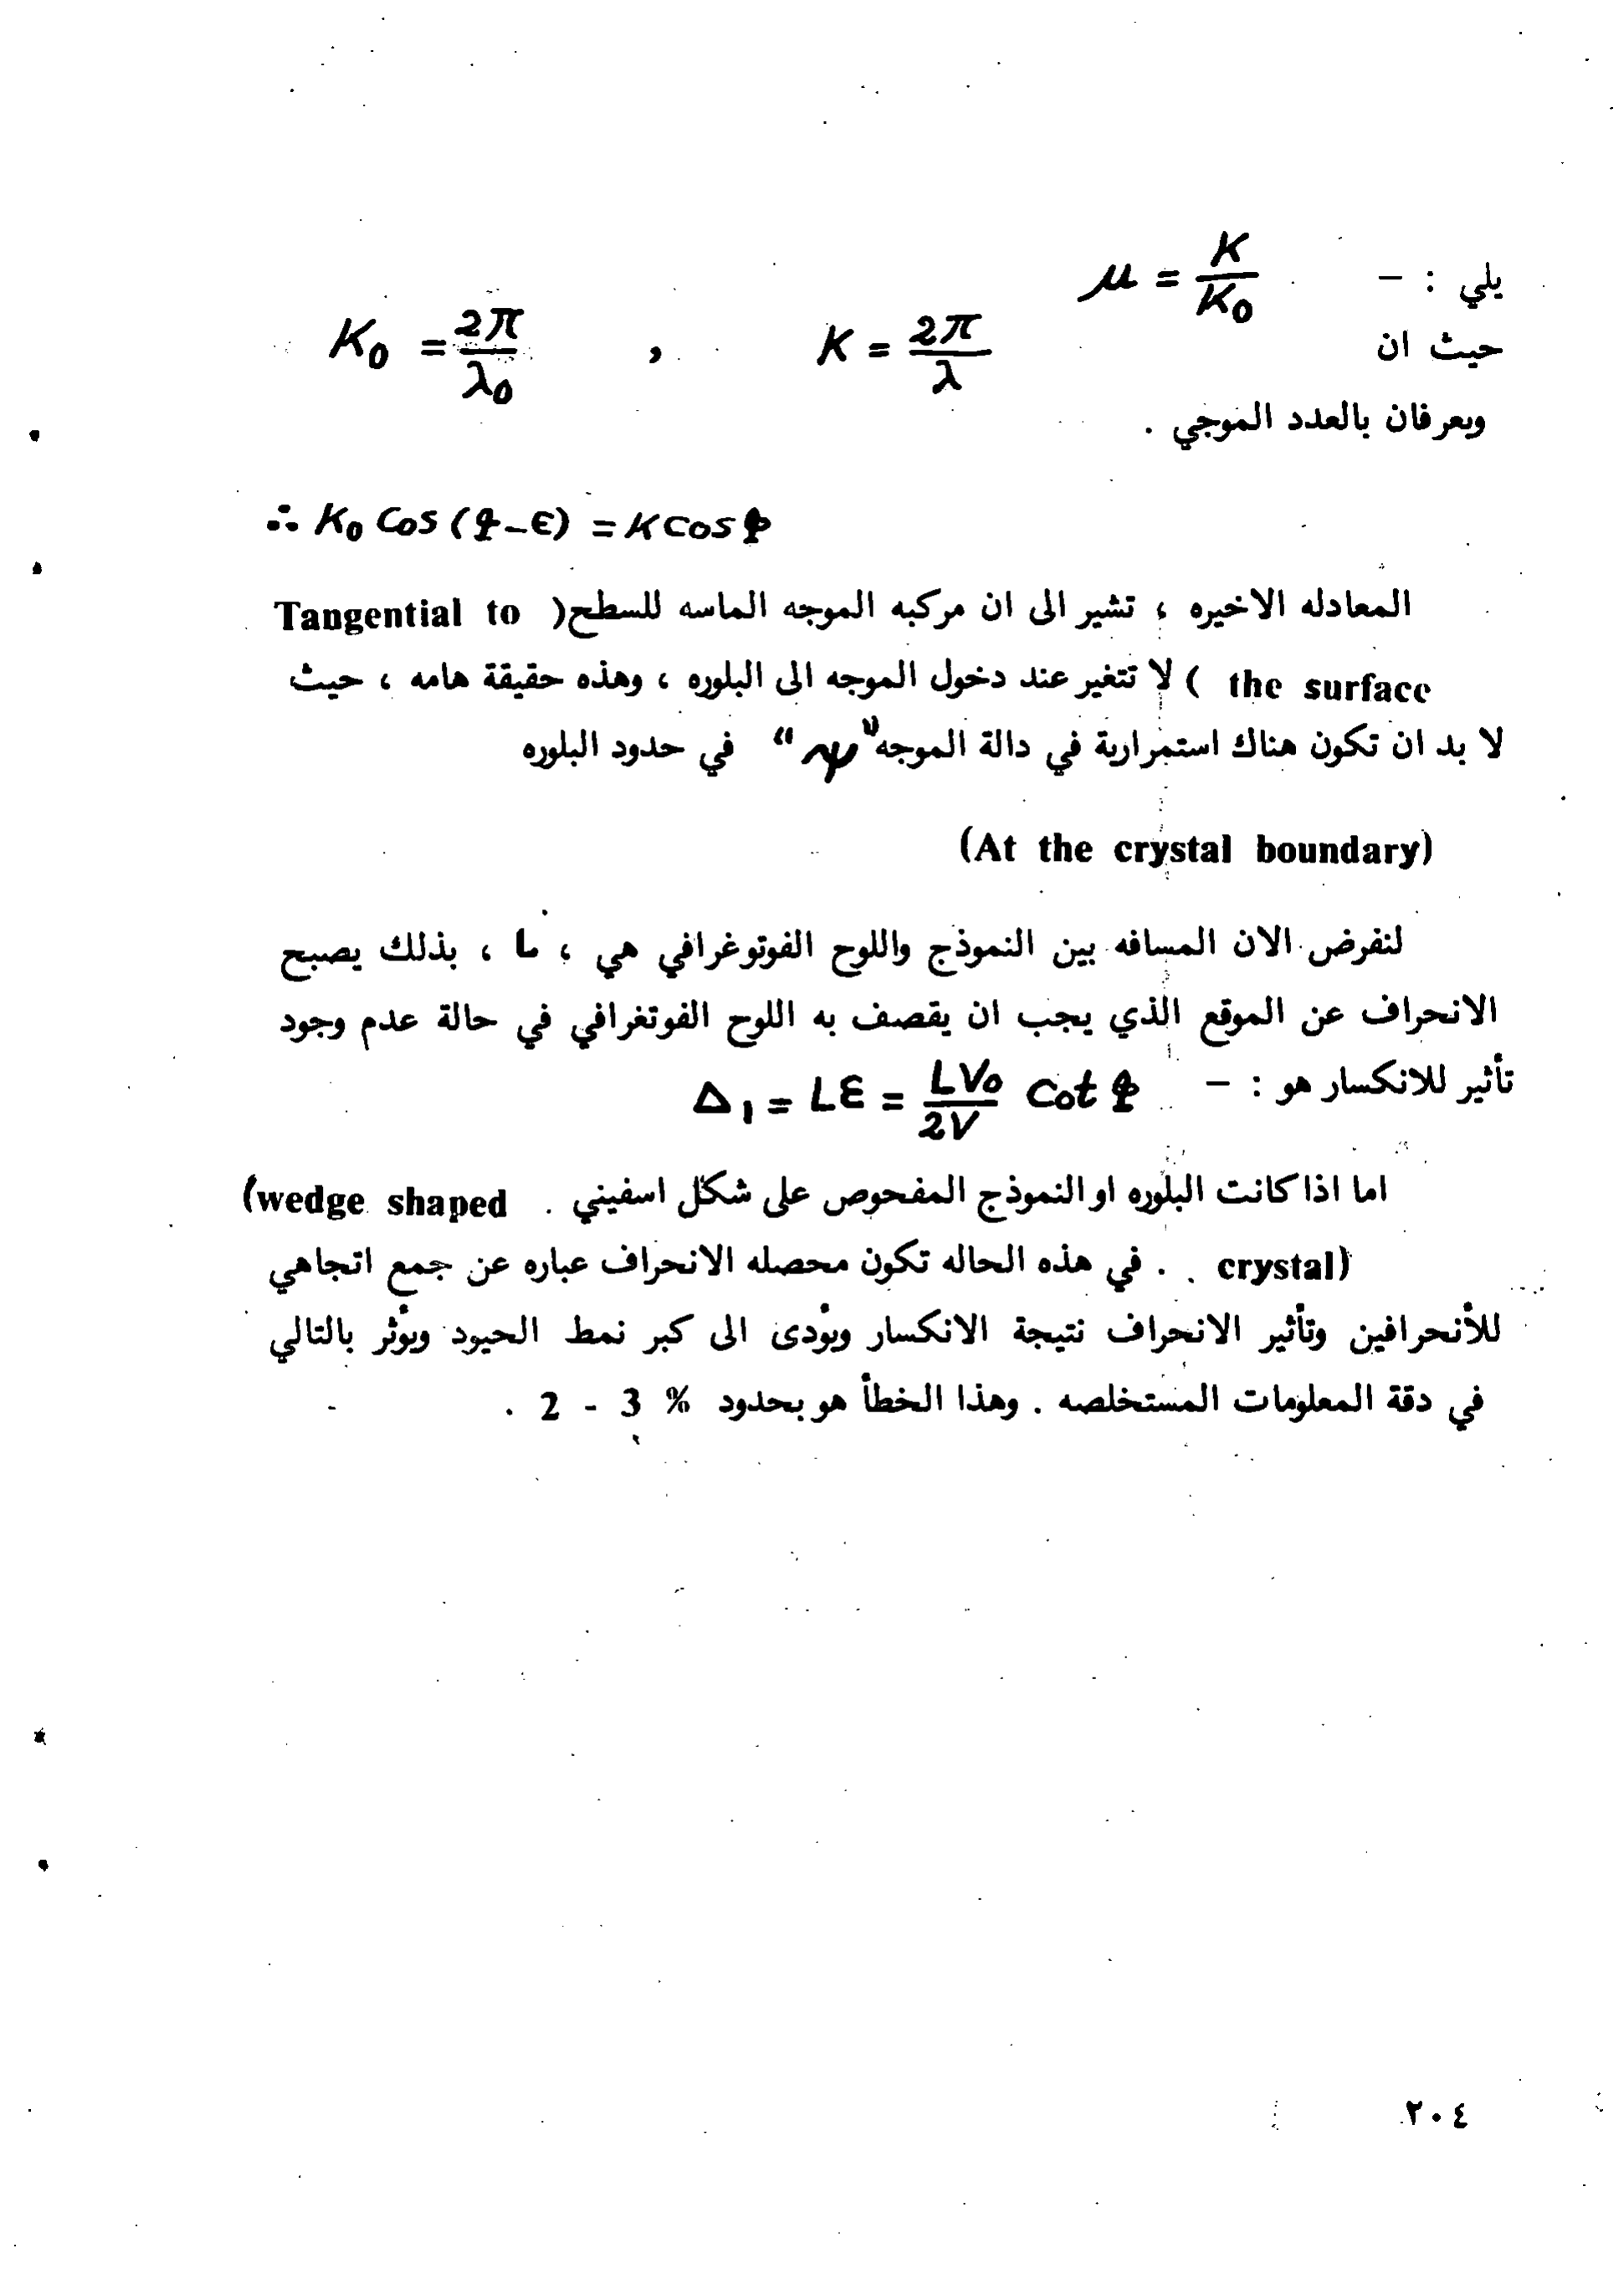 يلي : - μ = K / K₀
حيث ان K = 2π / λ , K₀ = 2π / λ₀
ويعرفان بالعدد الموجي .
∴ K₀ Cos (φ - ϵ) = K Cos φ
المعادله الاخيره ، تشير الى ان مركبه الموجه الماسه للسطح( Tangential to
the surface ) لا تتغير عند دخول الموجه الى البلوره ، وهذه حقيقة هامه ، حيث
لا بد ان تكون هناك استمرارية في دالة الموجه " ψ " في حدود البلوره
(At the crystal boundary)
لنفرض الان المسافه بين النموذج واللوح الفوتوغرافي هي ، L ، بذلك يصبح
الانحراف عن الموقع الذي يجب ان يقصف به اللوح الفوتغرافي في حالة عدم وجود
تأثير للانكسار هو : - Δ₁ = Lε = LV₀ / 2V Cot φ
اما اذا كانت البلوره او النموذج المفحوص على شكل اسفيني . (wedge shaped
crystal) . في هذه الحاله تكون محصله الانحراف عباره عن جمع اتجاهي
للأنحرافين وتأثير الانحراف نتيجة الانكسار ويؤدى الى كبر نمط الحيود ويؤثر بالتالي
في دقة المعلومات المستخلصه . وهذا الخطأ هو بحدود % 3 - 2 .
٢٠٤